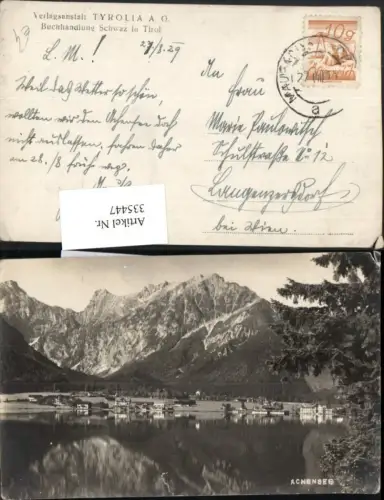 Verlagsanstalt TYROLIA A. G.
Buchhandlung Schwaz in Tirol
27/8.29
L. M. !
Weil das Wetter so schön,
wollten wir den Achensee doch
nicht auslassen, fahren daher
am 28./8 früh
An
Frau
Marie
Schulstraße 8-12
Langenzersdorf
bei Wien.
Artikel Nr.
335447
ACHENSEE